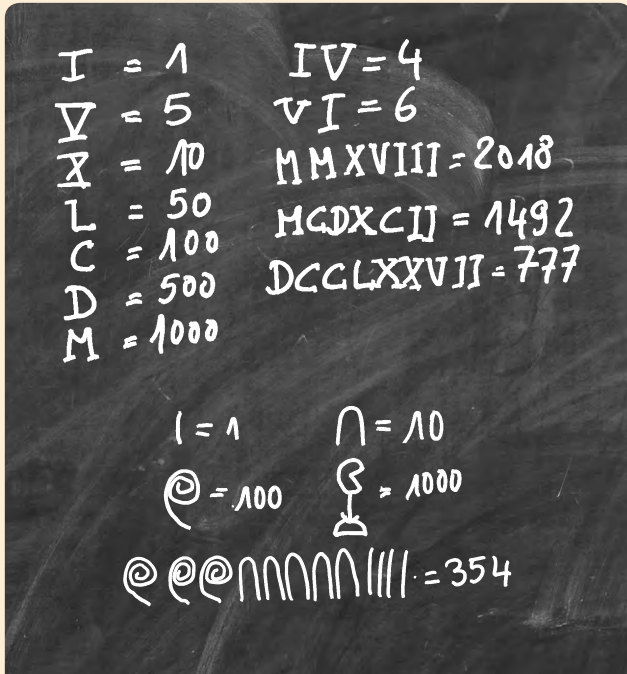 I = 1
V = 5
X = 10
L = 50
C = 100
D = 500
M = 1000
IV = 4
VI = 6
MMXVIII = 2018
MCDXCII = 1492
DCCLXXVII = 777
𓏺 = 1 𓎆 = 10
𓍢 = 100 𓆼 = 1000
𓍢𓍢𓍢𓎆𓎆𓎆𓎆𓎆𓏺𓏺𓏺𓏺 = 354